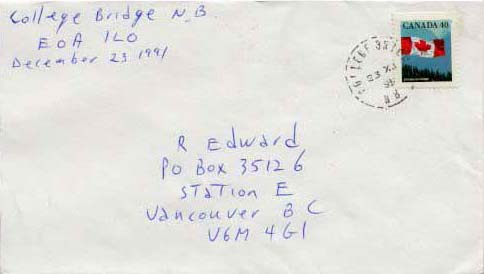 College Bridge N.B
E0A 1L0
December 23 1991
CANADA 40
COLLEGE BRIDGE
23 XI
N B
R Edward
PO Box 35126
Station E
Vancouver B C
V6M 4G1